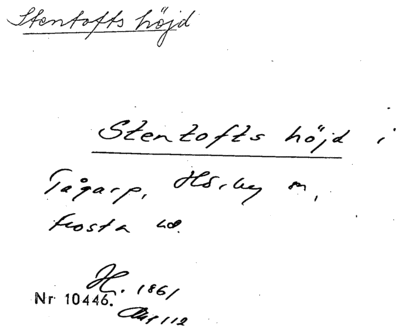 Stentofts höjd
Stentofts höjd i
Tågarp, Hörby sn,
Frosta hd.
H. 1861
Nr 10446.
112